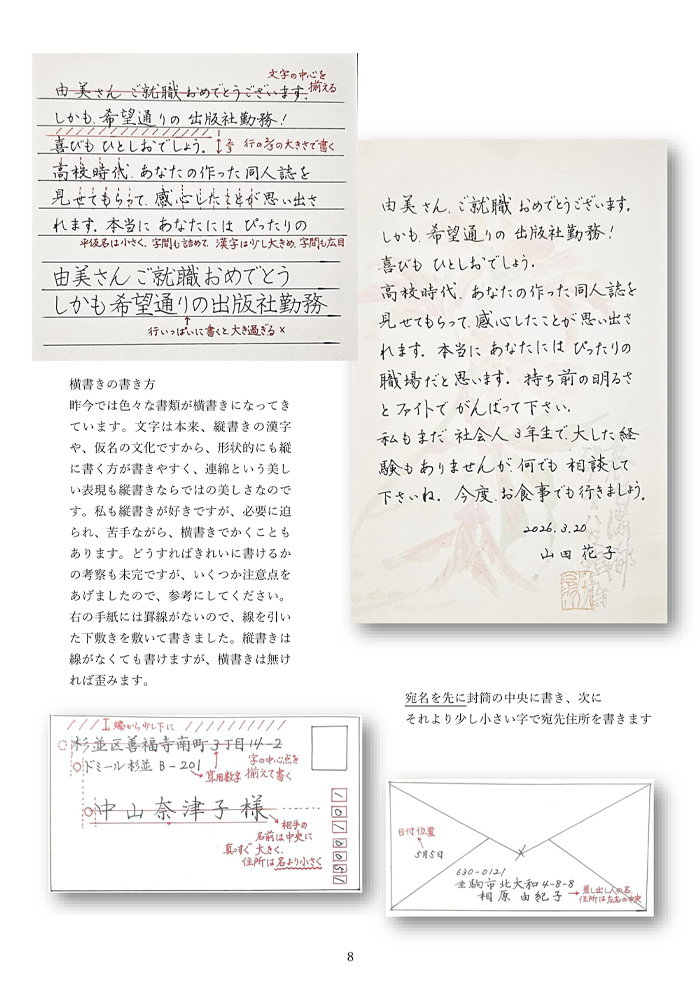 文字の中心を
揃える
由美さん、ご就職おめでとうございます。
しかも、希望通りの出版社勤務！
喜びもひとしおでしょう。
行の2/3の大きさで書く
高校時代、あなたの作った同人誌を
見せてもらって、感心したことが思い出さ
れます。本当にあなたにはぴったりの
平仮名は小さく、字間も詰めて、漢字は少し大きめ、字間も広目
由美さんご就職おめでとう
しかも希望通りの出版社勤務
行いっぱいに書くと大き過ぎる×
由美さん、ご就職おめでとうございます。
しかも、希望通りの出版社勤務！
喜びもひとしおでしょう。
高校時代、あなたの作った同人誌を
見せてもらって、感心したことが思い出さ
れます。本当にあなたにはぴったりの
職場だと思います。持ち前の明るさ
とファイトでがんばって下さい。
私もまだ社会人3年生で、大した経
験もありませんが、何でも相談して
下さいね。今度、お食事でも行きましょう。
2026.3.20
山田花子
横書きの書き方
昨今では色々な書類が横書きになってき
ています。文字は本来、縦書きの漢字
や、仮名の文化ですから、形状的にも縦
に書く方が書きやすく、連綿という美し
い表現も縦書きならではの美しさなので
す。私も縦書きが好きですが、必要に迫
られ、苦手ながら、横書きでかくことも
あります。どうすればきれいに書けるか
の考察も未完ですが、いくつか注意点を
あげましたので、参考にしてください。
右の手紙には罫線がないので、線を引い
た下敷きを敷いて書きました。縦書きは
線がなくても書けますが、横書きは無け
れば歪みます。
宛名を先に封筒の中央に書き、次に
それより少し小さい字で宛先住所を書きます
端から少し下に
杉並区善福寺南町3丁目14-2
ドミール杉並 B-201
算用数字
字の中心点を
揃えて書く
中山奈津子様
相手の
名前は中央に
真っすぐ大きく、
住所は名より小さく
1
0
1
0
0
5
1
日付位置
5月5日
630-0121
生駒市北大和4-8-8
相原由紀子
差し出し人の名、
住所は左右の中央
8